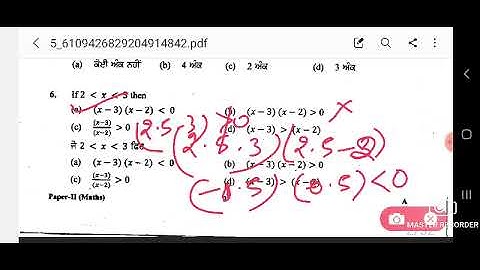 5_6109426829204914842.pdf
(a) ਕੋਈ ਅੰਕ ਨਹੀਂ (b) 4 ਅੰਕ (c) 2 ਅੰਕ (d) 3 ਅੰਕ
6. If 2 < x < 3 then
(a) (x – 3) (x – 2) < 0 (b) (x – 3) (x – 2) > 0 ×
(c) (x–3)/(x–2) > 0 (d) (x – 3) > (x – 2)
(2.5 - 3)
(2.5 - 2)
ਜੇ 2 < x < 3 ਫਿਰ
(a) (x – 3) (x – 2) < 0 (b) (x – 3) (x – 2) > 0
(c) (x–3)/(x–2) > 0 (d) (x – 3) > (x – 2)
(-0.5) (0.5) < 0
Paper-II (Maths) A
MASTER RECORDER